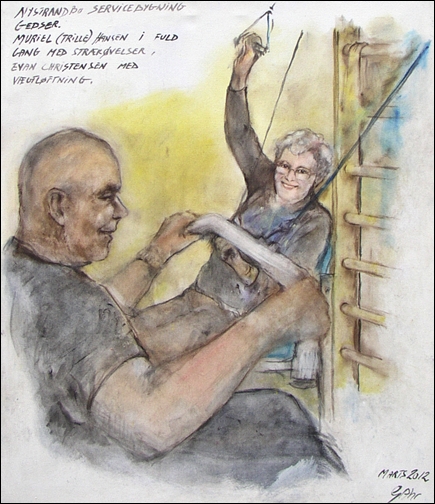 NYSTRANDBO SERVICEBYGNING
GEDSER.
MURIEL (TRILLE) HANSEN I FULD
GANG MED STRÆKØVELSER,
EVAN CHRISTENSEN MED
VÆGTLØFTNING.
MARTS 2012